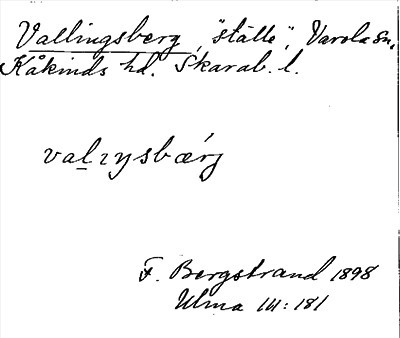 Vallingsberg, "ställe", Varola sn,
Kåkinds hd. Skarab. l.
valıŋsbærj
F. Bergstrand 1898
Ulma 111:181